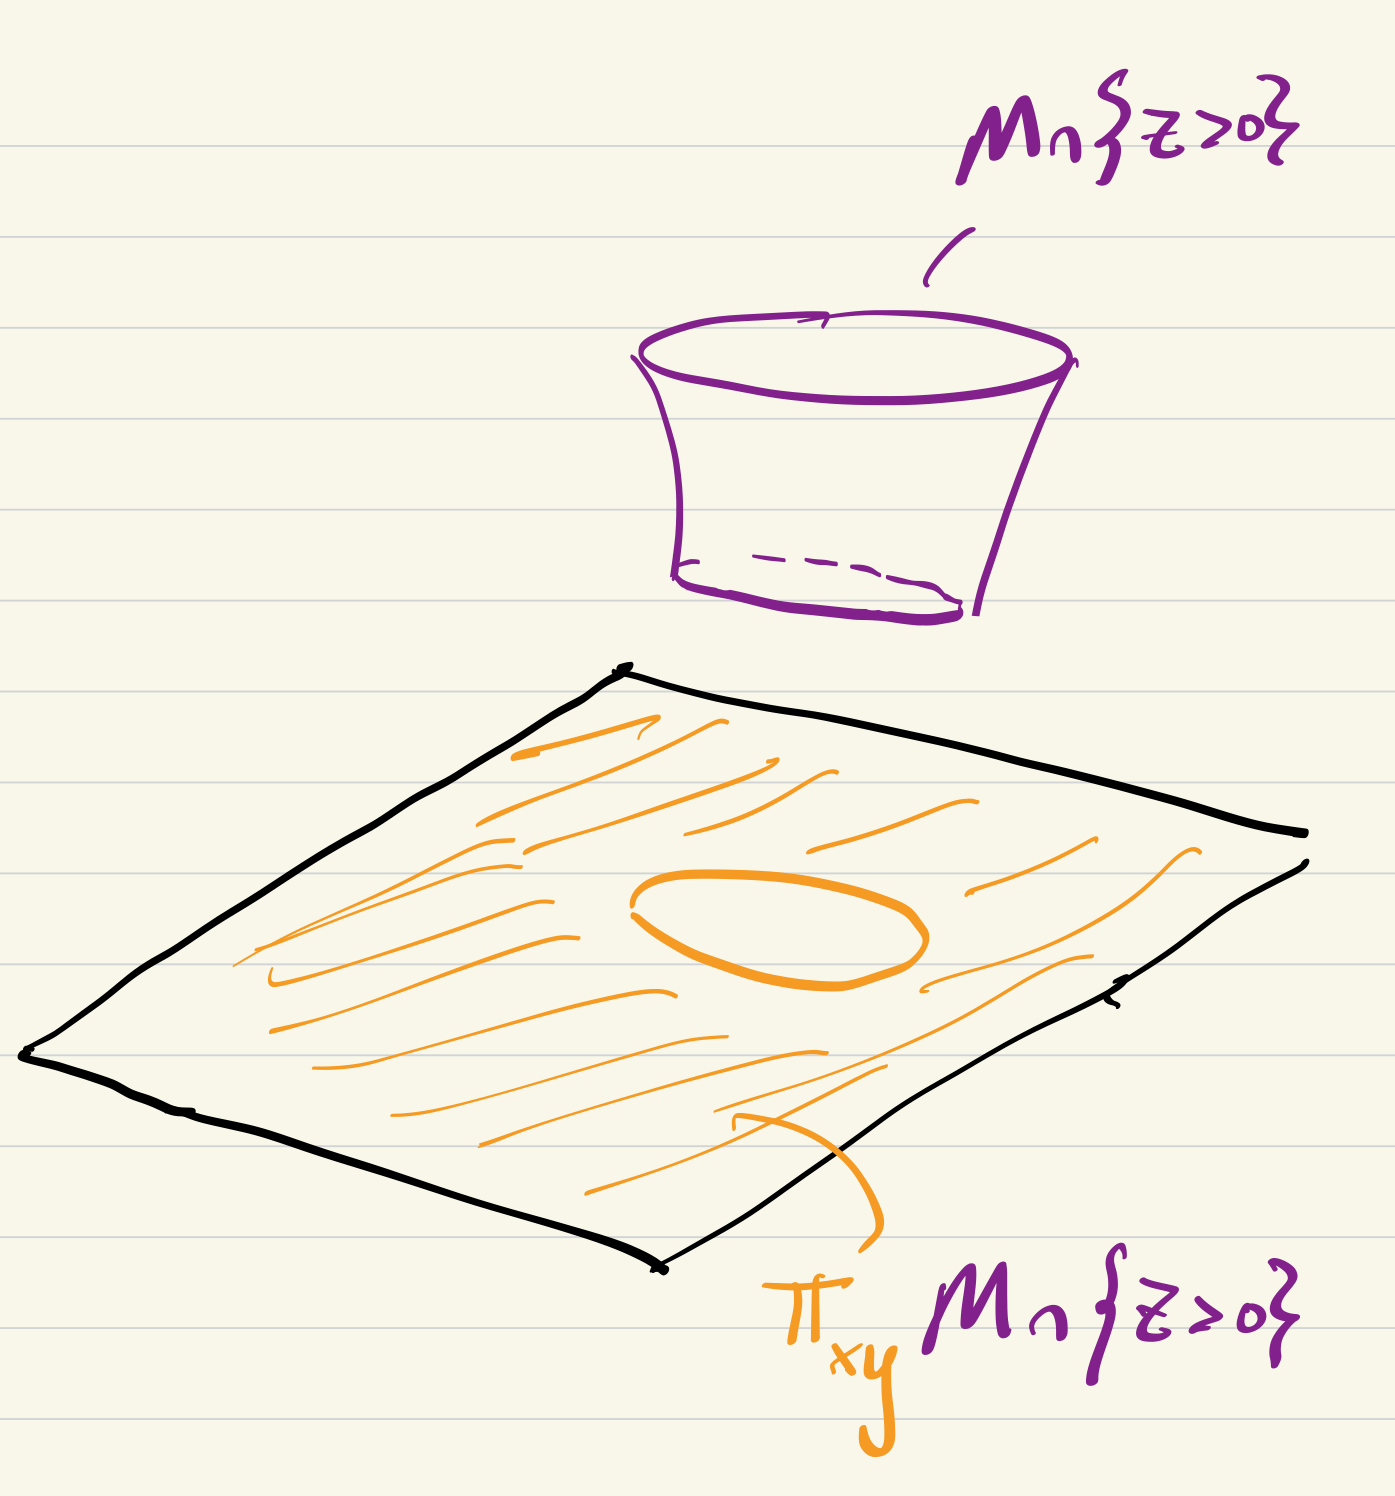 M∩{z>0}
π_xy M∩{z>0}